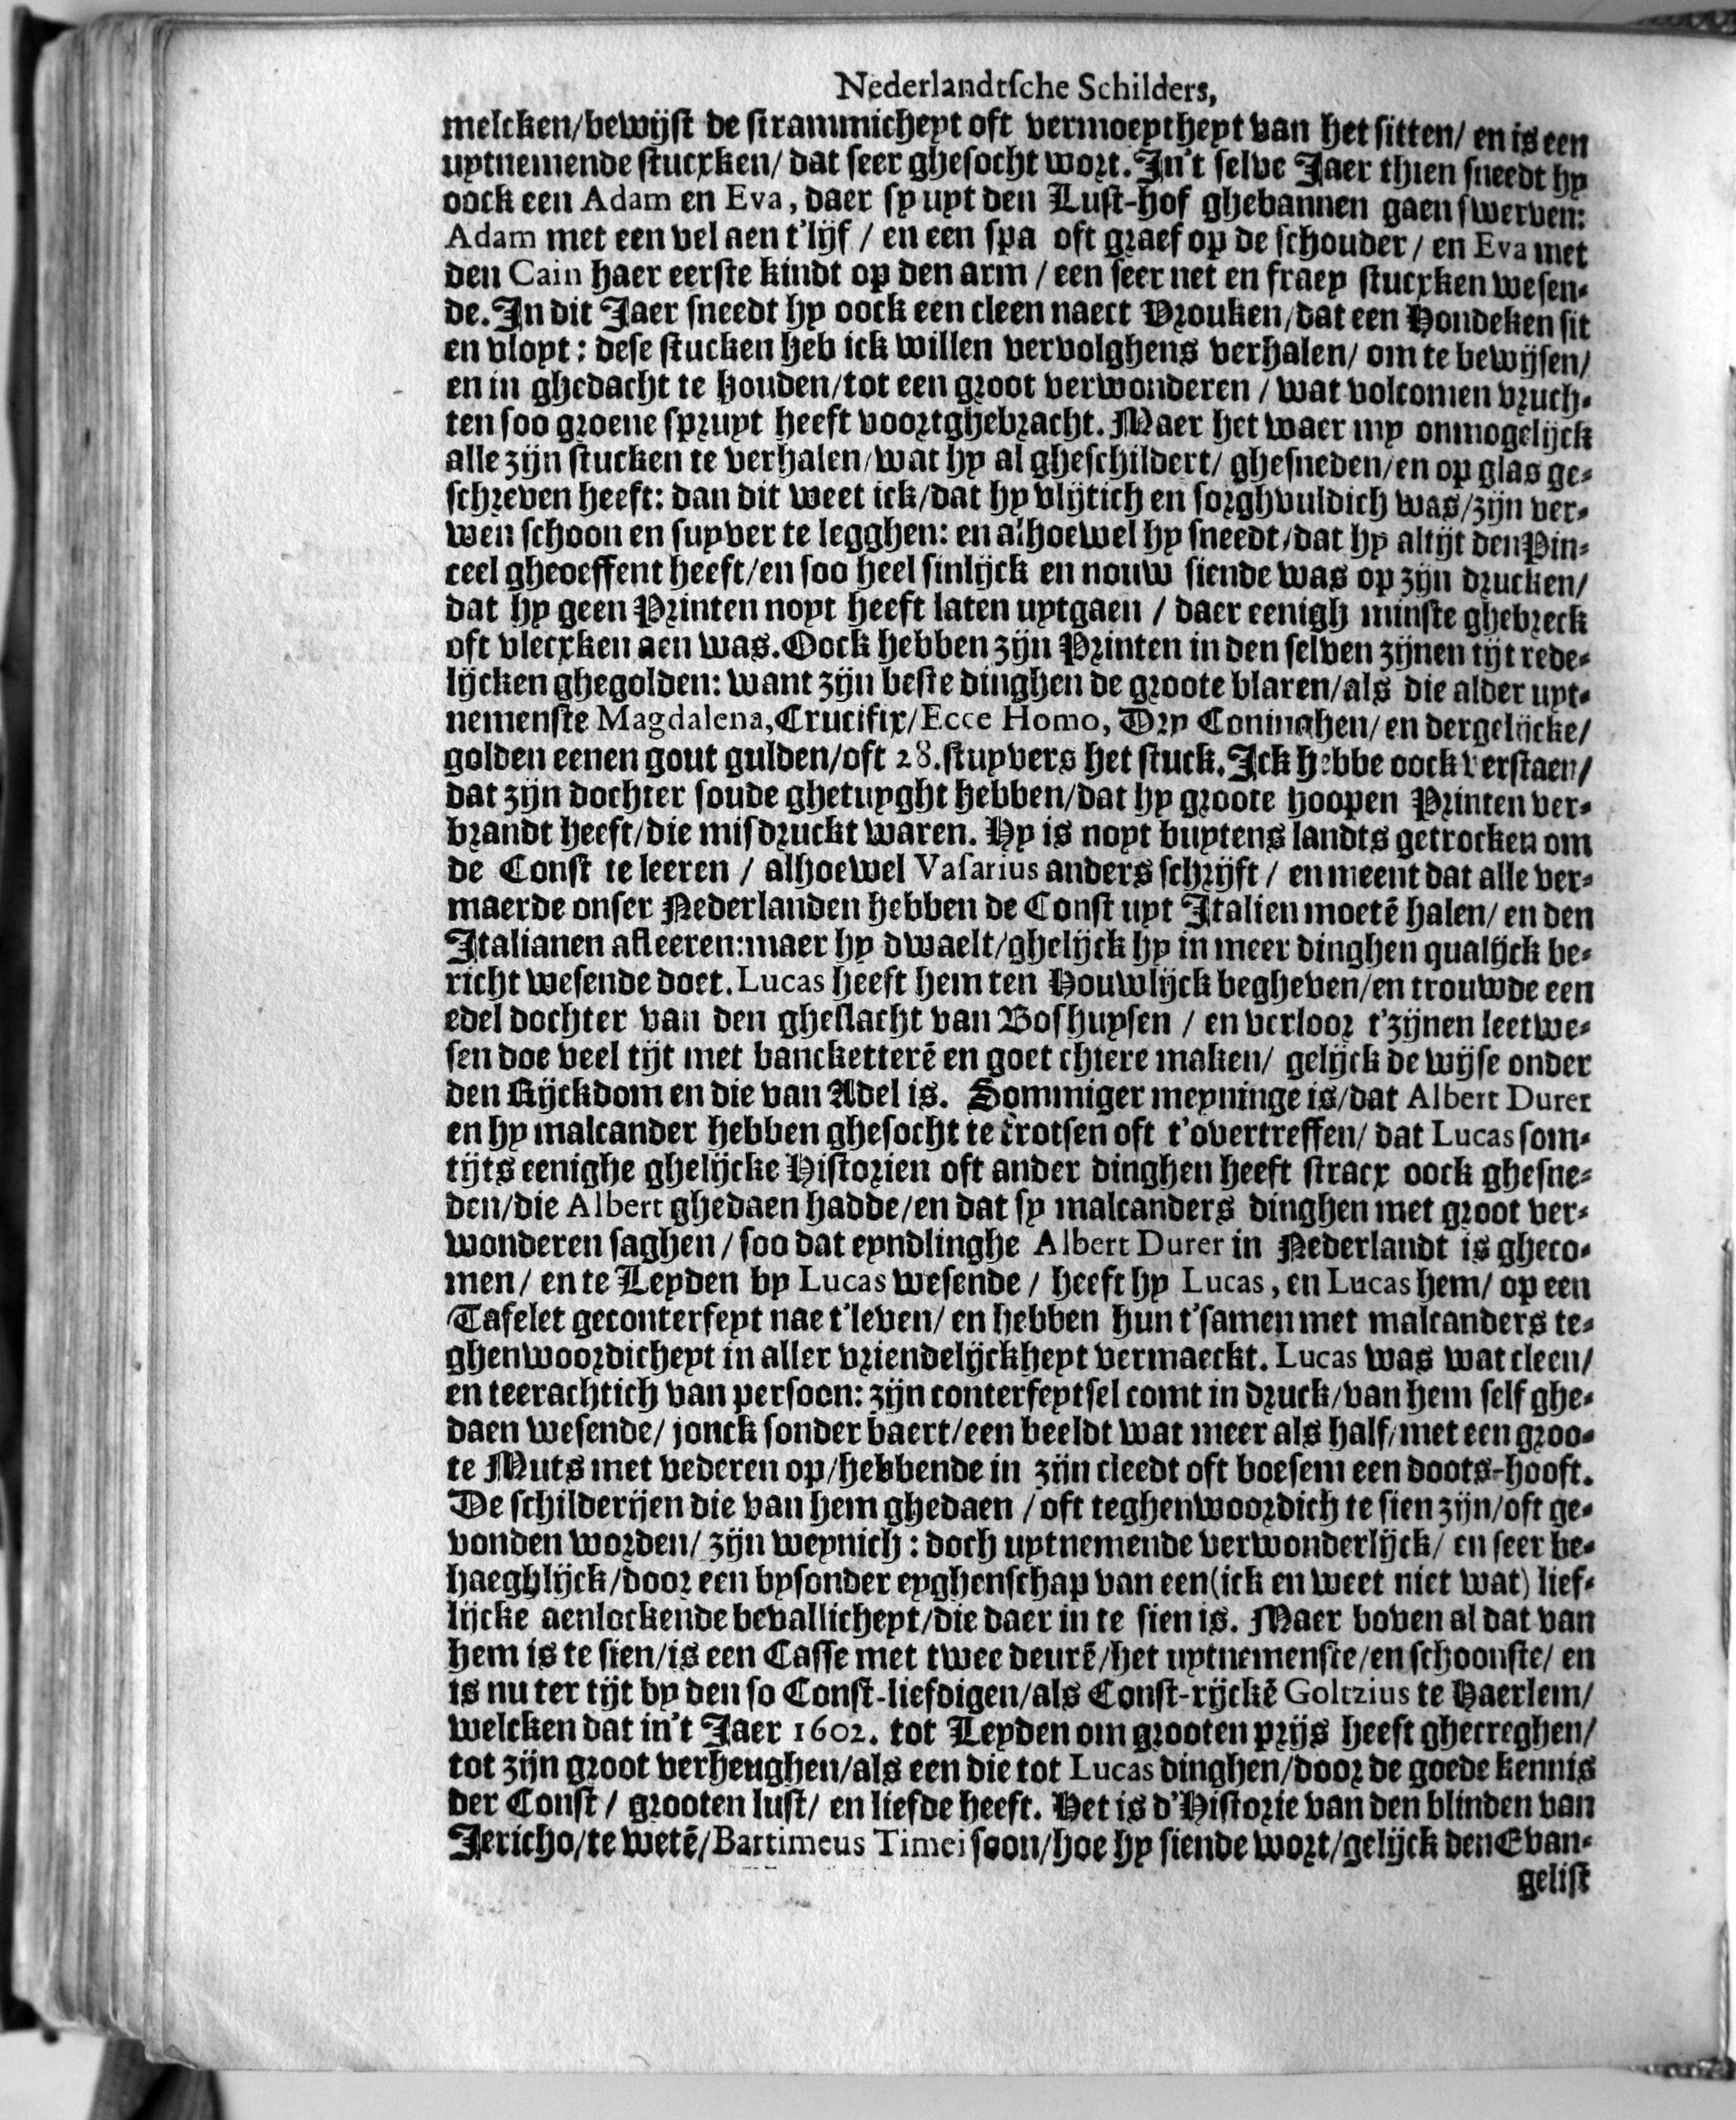 Nederlandtsche Schilders,
melcken/bewijst de strammicheyt oft vermoeytheyt van het sitten/ en is een
uytnemende stucxken/ dat seer ghesocht wort. In't selve Jaer thien sneedt hy
oock een Adam en Eva, daer sy uyt den Lust-hof ghebannen gaen swerven:
Adam met een vel aen t'lijf / en een spa oft graef op de schouder / en Eva met
den Cain haer eerste kindt op den arm / een seer net en fraey stucxken wesen-
de. In dit Jaer sneedt hy oock een cleen naect Vrouken/dat een Hondeken sit
en vloyt: dese stucken heb ick willen vervolghens verhalen/ om te bewijsen/
en in ghedacht te houden/tot een groot verwonderen / wat volcomen vruch-
ten soo groene spruyt heeft voortghebracht. Maer het waer my onmogelijck
alle zijn stucken te verhalen/wat hy al gheschildert/ ghesneden/en op glas ge-
schreven heeft: dan dit weet ick/dat hy vlijtich en sorghvuldich was/zijn ver-
wen schoon en suyver te legghen: en alhoewel hy sneedt/dat hy altijt den Pin-
ceel gheoeffent heeft/en soo heel sinlijck en nouw siende was op zijn drucken/
dat hy geen Printen noyt heeft laten uytgaen / daer eenigh minste ghebreck
oft vlecxken aen was. Oock hebben zijn Printen in den selven zijnen tijt rede-
lijcken ghegolden: want zijn beste dinghen de groote blaren/als die alder uyt-
nemenste Magdalena, Crucifix/Ecce Homo, Dry Coninghen/ en dergelijcke/
golden eenen gout gulden/oft 28. stuyvers het stuck. Ick hebbe oock verstaen/
dat zijn dochter soude ghetuyght hebben/dat hy groote hoopen Printen ver-
brandt heeft/die misdruckt waren. Hy is noyt buytens landts getrocken om
de Const te leeren / alhoewel Vasarius anders schrijft / en meent dat alle ver-
maerde onser Nederlanden hebben de Const uyt Italien moetē halen/ en den
Italianen afleeren:maer hy dwaelt/ghelijck hy in meer dinghen qualijck be-
richt wesende doet. Lucas heeft hem ten Houwlijck begheven/en trouwde een
edel dochter van den gheslacht van Boshuysen / en verloor t'zijnen leetwe-
sen doe veel tijt met banckketterē en goet chiere maken/ gelijck de wijse onder
den Rijckdom en die van Adel is. Sommiger meyninge is/dat Albert Durer
en hy malcander hebben ghesocht te trotsen oft t'overtreffen/ dat Lucas som-
tijts eenighe ghelijcke Historien oft ander dinghen heeft stracx oock ghesne-
den/die Albert ghedaen hadde/en dat sy malcanders dinghen met groot ver-
wonderen saghen / soo dat eyndlinghe Albert Durer in Nederlandt is gheco-
men/ en te Leyden by Lucas wesende / heeft hy Lucas, en Lucas hem/ op een
Tafelet geconterfeyt nae t'leven/ en hebben hun t'samen met malcanders te-
ghenwoordicheyt in aller vriendelijckheyt vermaeckt. Lucas was wat cleen/
en teerachtich van persoon: zijn conterfeytsel comt in druck/van hem self ghe-
daen wesende/ jonck sonder baert/een beeldt wat meer als half/met een groo-
te Muts met vederen op/hebbende in zijn cleedt oft boesem een doots-hooft.
De schilderijen die van hem ghedaen / oft teghenwoordich te sien zijn/oft ge-
vonden worden/ zijn weynich: doch uytnemende verwonderlijck/ en seer be-
haeghlijck/door een bysonder eyghenschap van een (ick en weet niet wat) lief-
lijcke aenlockende bevallicheyt/die daer in te sien is. Maer boven al dat van
hem is te sien/is een Casse met twee deurē/het uytnemenste/en schoonste/ en
is nu ter tijt by den so Const-liefdigen/als Const-rijckē Goltzius te Haerlem/
welcken dat in't Jaer 1602. tot Leyden om grooten prijs heeft ghecreghen/
tot zijn groot verheughen/als een die tot Lucas dinghen/door de goede kennis
der Const / grooten lust/ en liefde heeft. Het is d'Historie van den blinden van
Jericho/te wetē/Bartimeus Timei soon/hoe hy siende wort/gelijck den Evan-
gelist